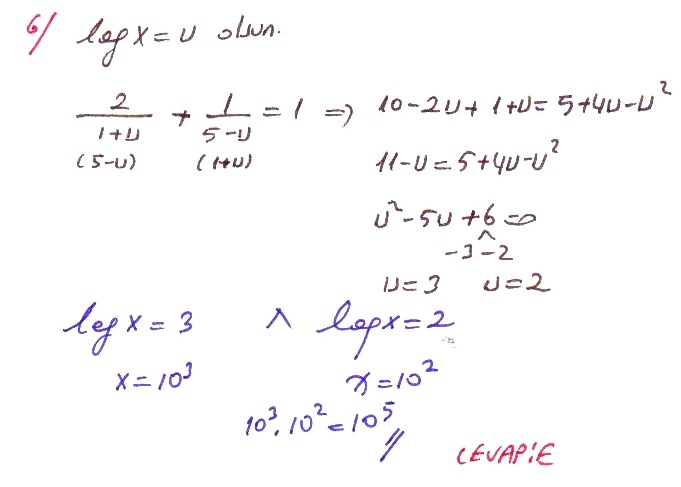 6/ log x = u olsun.
2/(1+u) + 1/(5-u) = 1 => 10-2u+1+u=5+4u-u²
(5-u) (1+u)
11-u=5+4u-u²
u²-5u+6=0
-3 -2
u=3 u=2
log x = 3 ∧ log x = 2
x=10³ x=10²
10³.10²=10⁵ //
CEVAP:E